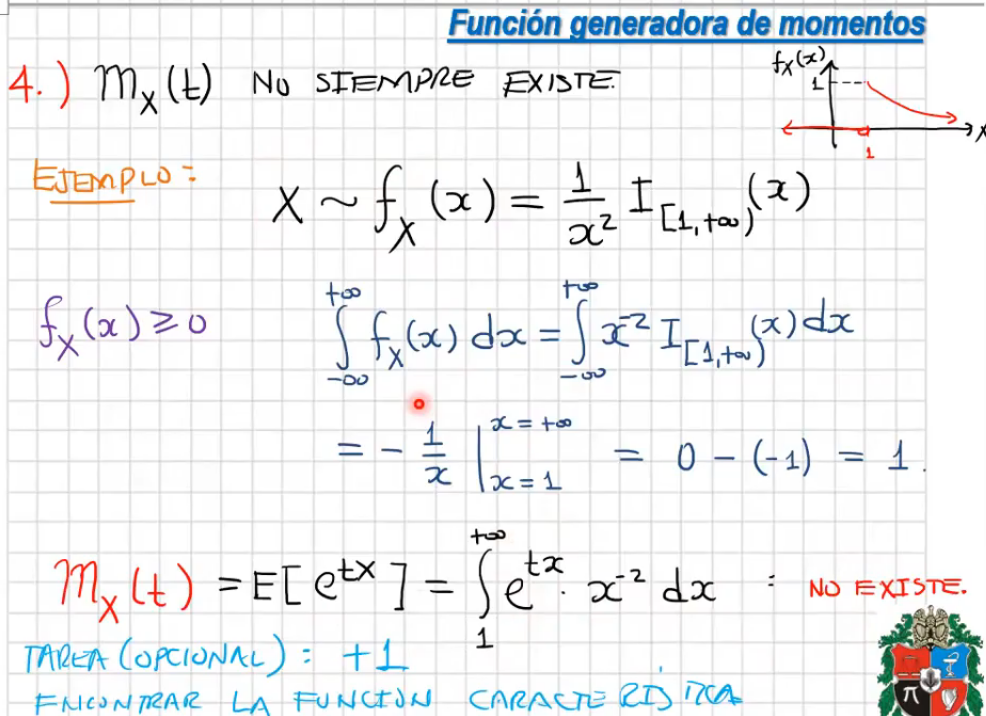 Función generadora de momentos
4.) m_X(t) NO SIEMPRE EXISTE.
f_X(x)
1
x
1
EJEMPLO:
X ~ f_X(x) = 1/x² I_[1,+∞)(x)
f_X(x) ≥ 0
∫_{-∞}^{+∞} f_X(x) dx = ∫_{-∞}^{+∞} x⁻² I_[1,+∞)(x) dx
= - 1/x |_{x=1}^{x=+∞} = 0 - (-1) = 1.
m_X(t) = E[e^{tX}] = ∫_1^{+∞} e^{tx} · x⁻² dx : NO EXISTE.
TAREA (OPCIONAL) : +1
ENCONTRAR LA FUNCIÓN CARACTERÍSTICA
π